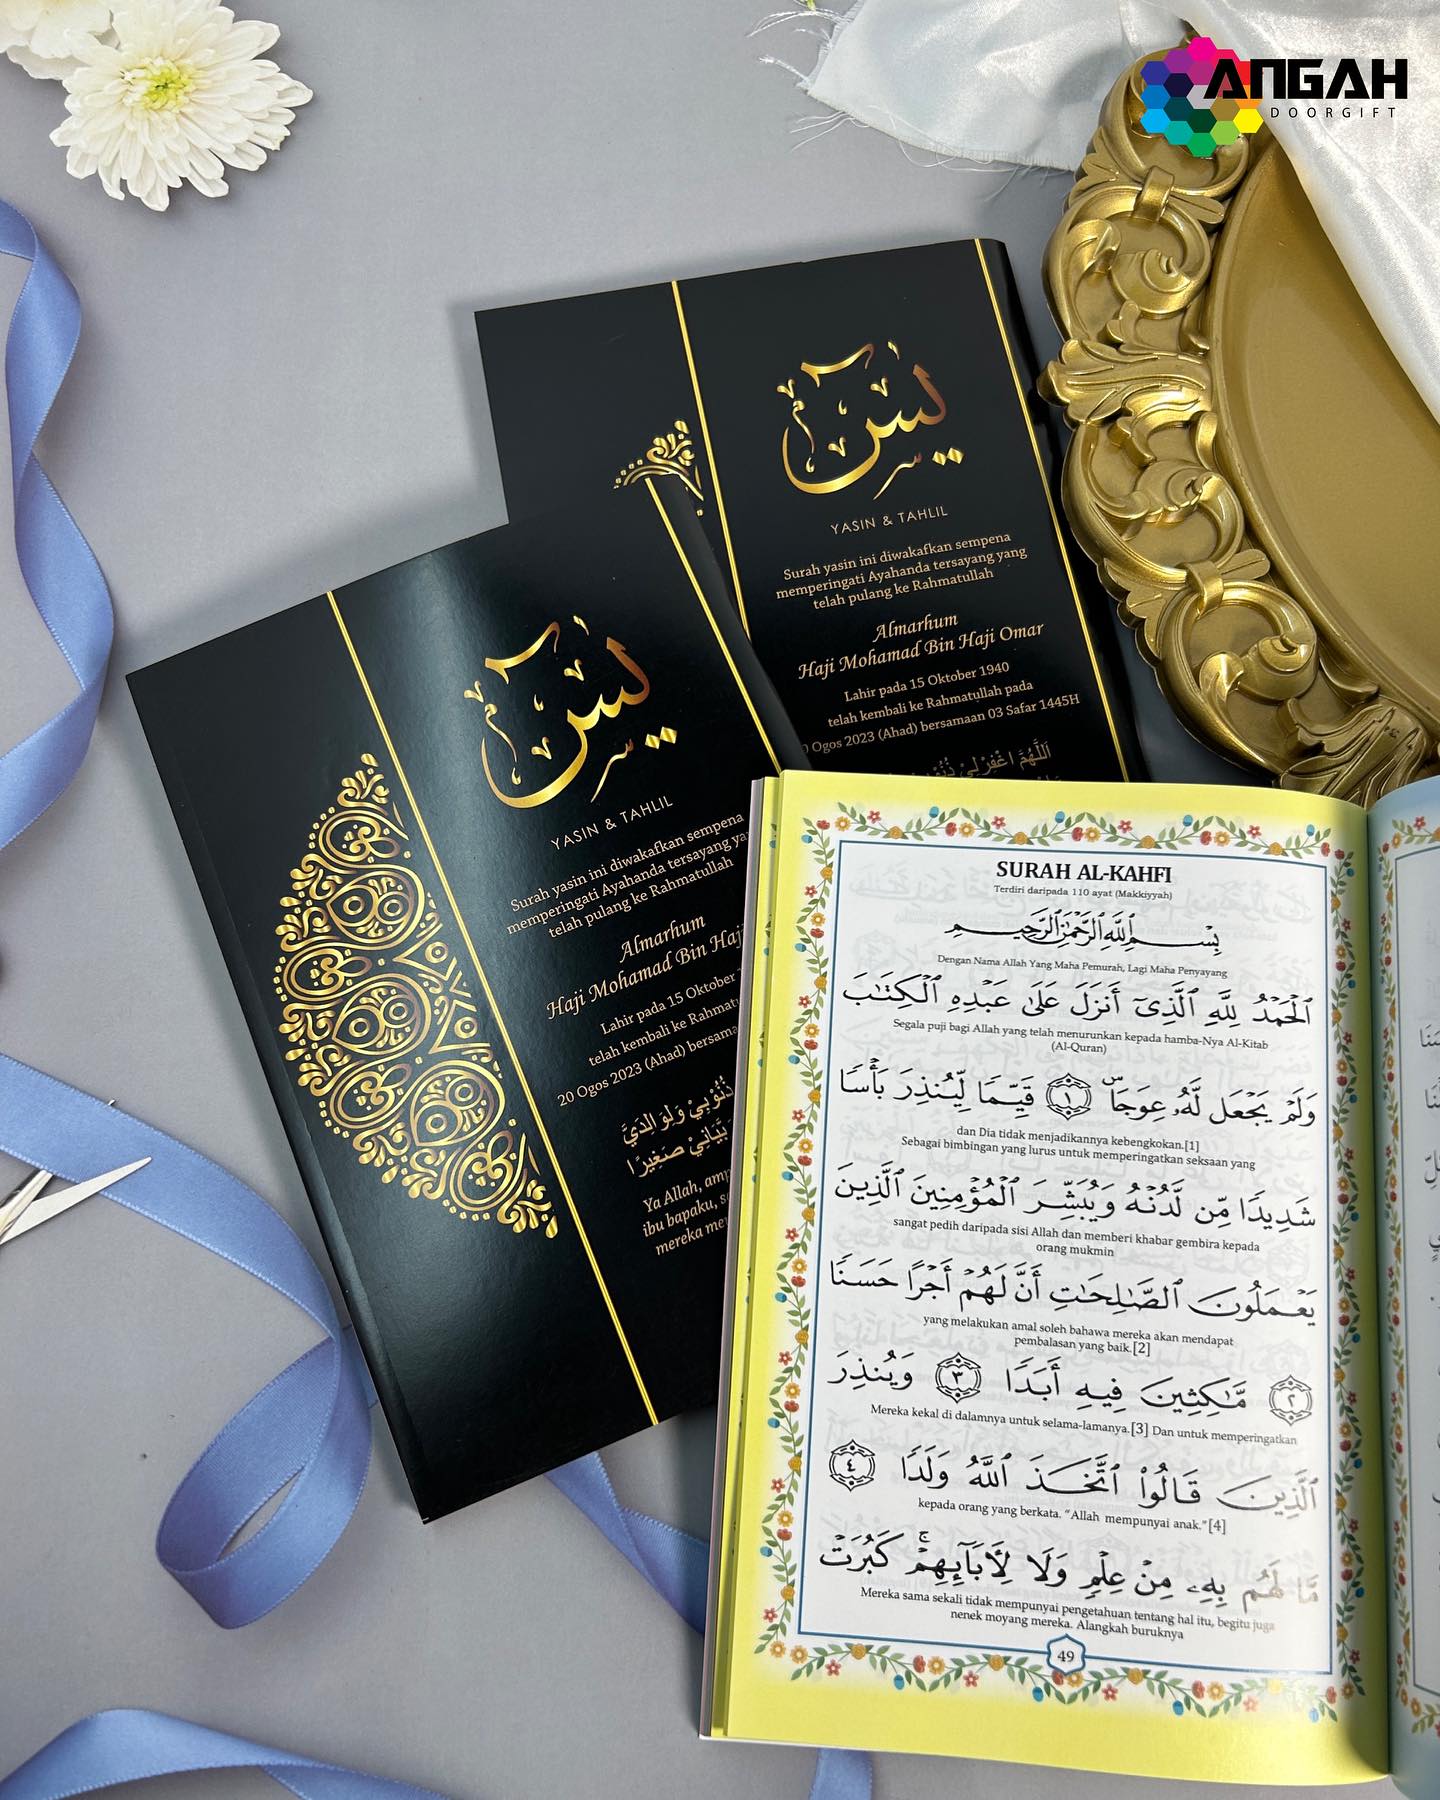 ANGAH
DOORGIFT
يس
YASIN & TAHLIL
Surah yasin ini diwakafkan sempena
memperingati Ayahanda tersayang yang
telah pulang ke Rahmatullah
Almarhum
Haji Mohamad Bin Haji Omar
Lahir pada 15 Oktober 1940
telah kembali ke Rahmatullah pada
Ogos 2023 (Ahad) bersamaan 03 Safar 1445H
اَللّٰهُمَّ اغْفِرْلِيْ
يس
YASIN & TAHLIL
Surah yasin ini diwakafkan sempena
memperingati Ayahanda tersayang
telah pulang ke Rahmatullah
Almarhum
Haji Mohamad Bin Haj
Lahir pada 15 Oktober
telah kembali ke
20 Ogos 2023 (Ahad)
ذُنُوْبِيْ وَلِوَالِدَيَّ
صَغِيْرًا
Ya Allah,
ibu bapaku,
mereka
SURAH AL-KAHFI
Terdiri daripada 110 ayat (Makkiyyah)
بِسْمِ ٱللَّهِ ٱلرَّحْمَٰنِ ٱلرَّحِيمِ
Dengan Nama Allah Yang Maha Pemurah, Lagi Maha Penyayang
ٱلْحَمْدُ لِلَّهِ ٱلَّذِىٓ أَنزَلَ عَلَىٰ عَبْدِهِ ٱلْكِتَٰبَ
Segala puji bagi Allah yang telah menurunkan kepada hamba-Nya Al-Kitab
(Al-Quran)
وَلَمْ يَجْعَل لَّهُۥ عِوَجَاۜ ١ قَيِّمًا لِّيُنذِرَ بَأْسًا
dan Dia tidak menjadikannya kebengkokan.[1]
Sebagai bimbingan yang lurus untuk memperingatkan seksaan yang
شَدِيدًا مِّن لَّدُنْهُ وَيُبَشِّرَ ٱلْمُؤْمِنِينَ ٱلَّذِينَ
sangat pedih daripada sisi Allah dan memberi khabar gembira kepada
orang mukmin
يَعْمَلُونَ ٱلصَّٰلِحَٰتِ أَنَّ لَهُمْ أَجْرًا حَسَنًا
yang melakukan amal soleh bahawa mereka akan mendapat
pembalasan yang baik.[2]
٢ مَّٰكِثِينَ فِيهِ أَبَدًا ٣ وَيُنذِرَ
Mereka kekal di dalamnya untuk selama-lamanya.[3] Dan untuk memperingatkan
ٱلَّذِينَ قَالُوا۟ ٱتَّخَذَ ٱللَّهُ وَلَدًا ٤
kepada orang yang berkata. “Allah mempunyai anak.”[4]
مَّا لَهُم بِهِۦ مِنْ عِلْمٍ وَلَا لِـَٔابَآئِهِمْ ۚ كَبُرَتْ
Mereka sama sekali tidak mempunyai pengetahuan tentang hal itu, begitu juga
nenek moyang mereka. Alangkah buruknya
49